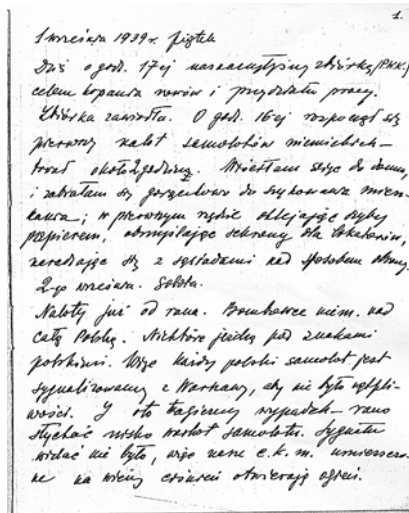 1.
1 września 1939 r. piątek
Dziś o godz. 17ej zbiórka /PWK/
celem kopania rowów i przydziału pracy.
Zbiórka zawiodła. O godz. 16-ej rozpoczął się
pierwszy nalot samolotów niemieckich –
trwał około 2 godziny. więc do domu,
i zabrałam się gorączkowo do szykowania miesz-
kania; w pierwszym rzędzie oklejając szyby
papierem, obmyślając schrony dla lokatorów,
naradzając się z sąsiadami nad sposobem obrony.
2-go września. Sobota.
Naloty już od rana. Bombowce niem. nad
całą Polską. Niektóre pod znakami
polskimi. Więc każdy polski samolot jest
sygnalizowany z Warszawy, aby nie było wątpli-
wości. I oto tragiczny wypadek – rano
słychać nisko warkot samolotu. Sygnału
widać nie było, więc nasze c.k.m. umieszczo-
ne na wieży ciśnień otwierają ogień.